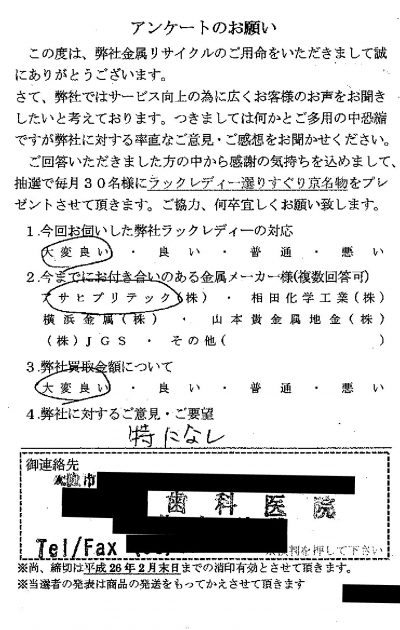 アンケートのお願い
この度は、弊社金属リサイクルのご用命をいただきまして誠
にありがとうございます。
さて、弊社ではサービス向上の為に広くお客様のお声をお聞き
したいと考えております。つきましては何かとご多用の中恐縮
ですが弊社に対する率直なご意見・ご感想をお聞かせください。
ご回答いただきました方の中から感謝の気持ちを込めまして、
抽選で毎月30名様にラックレディー選りすぐり京名物をプレ
ゼントさせて頂きます。ご協力、何卒宜しくお願い致します。
1.今回お伺いした弊社ラックレディーの対応
大変良い・良い・普通・悪い
2.今までにお付き合いのある金属メーカー様(複数回答可)
アサヒプリテック(株)・相田化学工業(株)
横浜金属(株)・山本貴金属地金(株)
(株)JGS・その他( )
3.弊社買取金額について
大変良い・良い・普通・悪い
4.弊社に対するご意見・ご要望
特になし
御連絡先
市
歯科医院
Tel/Fax
判を押して下さい
※尚、締切は平成26年2月末日までの消印有効とさせて頂きます。
※当選者の発表は商品の発送をもってかえさせて頂きます